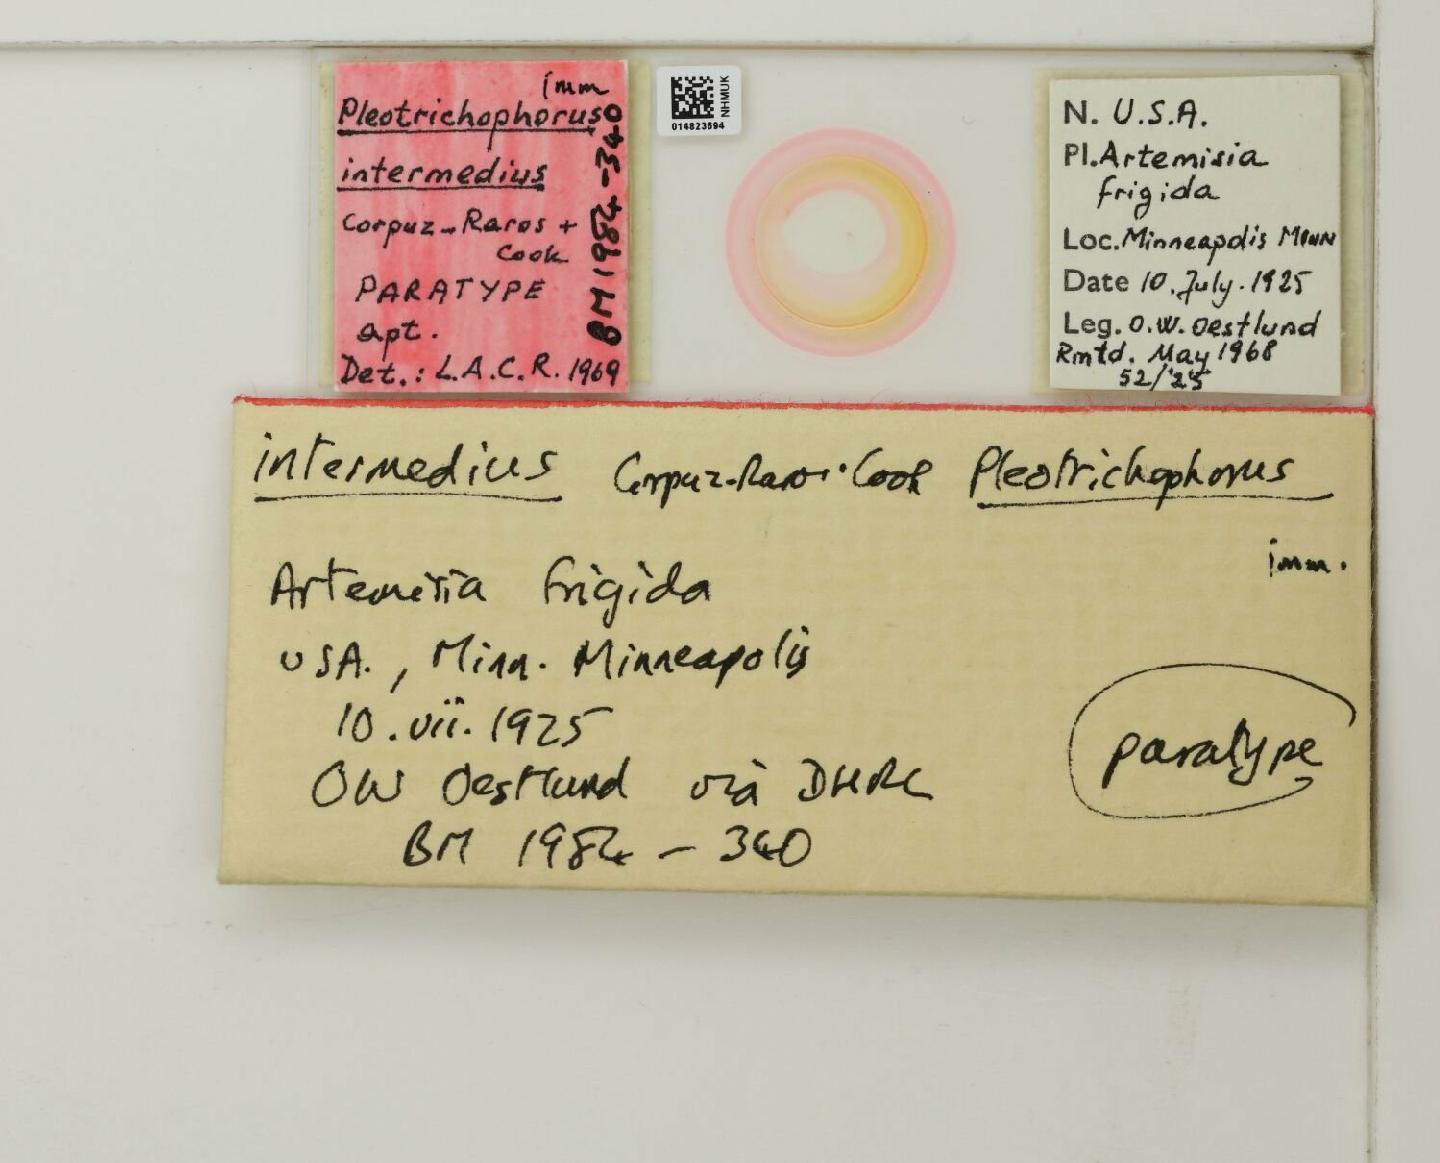 imm
Pleotrichophorus
intermedius
Corpuz-Raros +
Cook
PARATYPE
apt.
Det.: L.A.C.R. 1969
BM 1984-340
NHMUK
014823594
N. U.S.A.
Pl. Artemisia
frigida
Loc. Minneapolis MINN
Date 10. July. 1925
Leg. O.W. Oestlund
Rmtd. May 1968
52/'25
intermedius Corpuz-Raros + Cook Pleotrichophorus
imm.
Artemisia frigida
USA., Minn. Minneapolis
10.vii.1925
paratype
OW Oestlund via DHRL
BM 1984 - 340